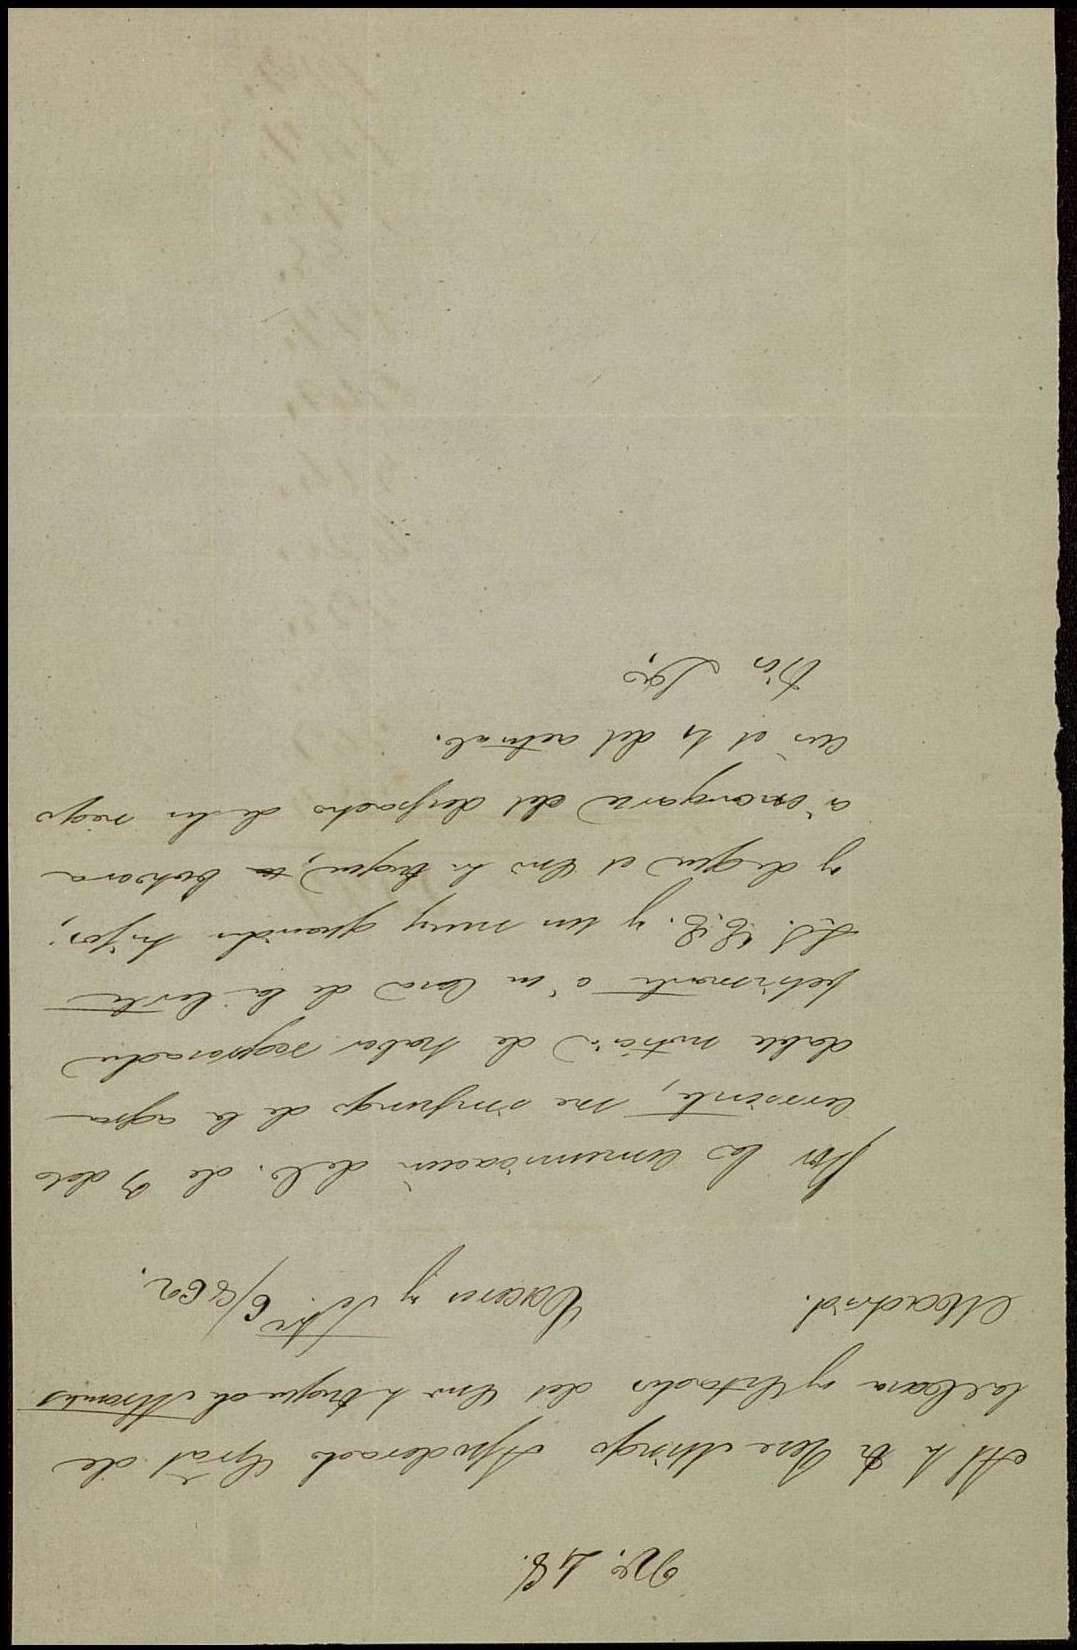 No. 48.
Al Sr. Dn Jose Mingo Apoderado Gral. de
la Casa y Estados del Exmo Sr Duque de Abrantes
Madrid. Caceres y 6/862.
Por la comunicacion de V. de 3 del
corriente, me impongo de la agra
dable noticia de haber regresado
felizmente á su Casa de la Corte
S.S. E.E. y sus muy queridos hijos;
y de que el Exmo Sr Duque, se volvera
á encargar del despacho de los nego
cios el 15 del actual.
Dios &a,